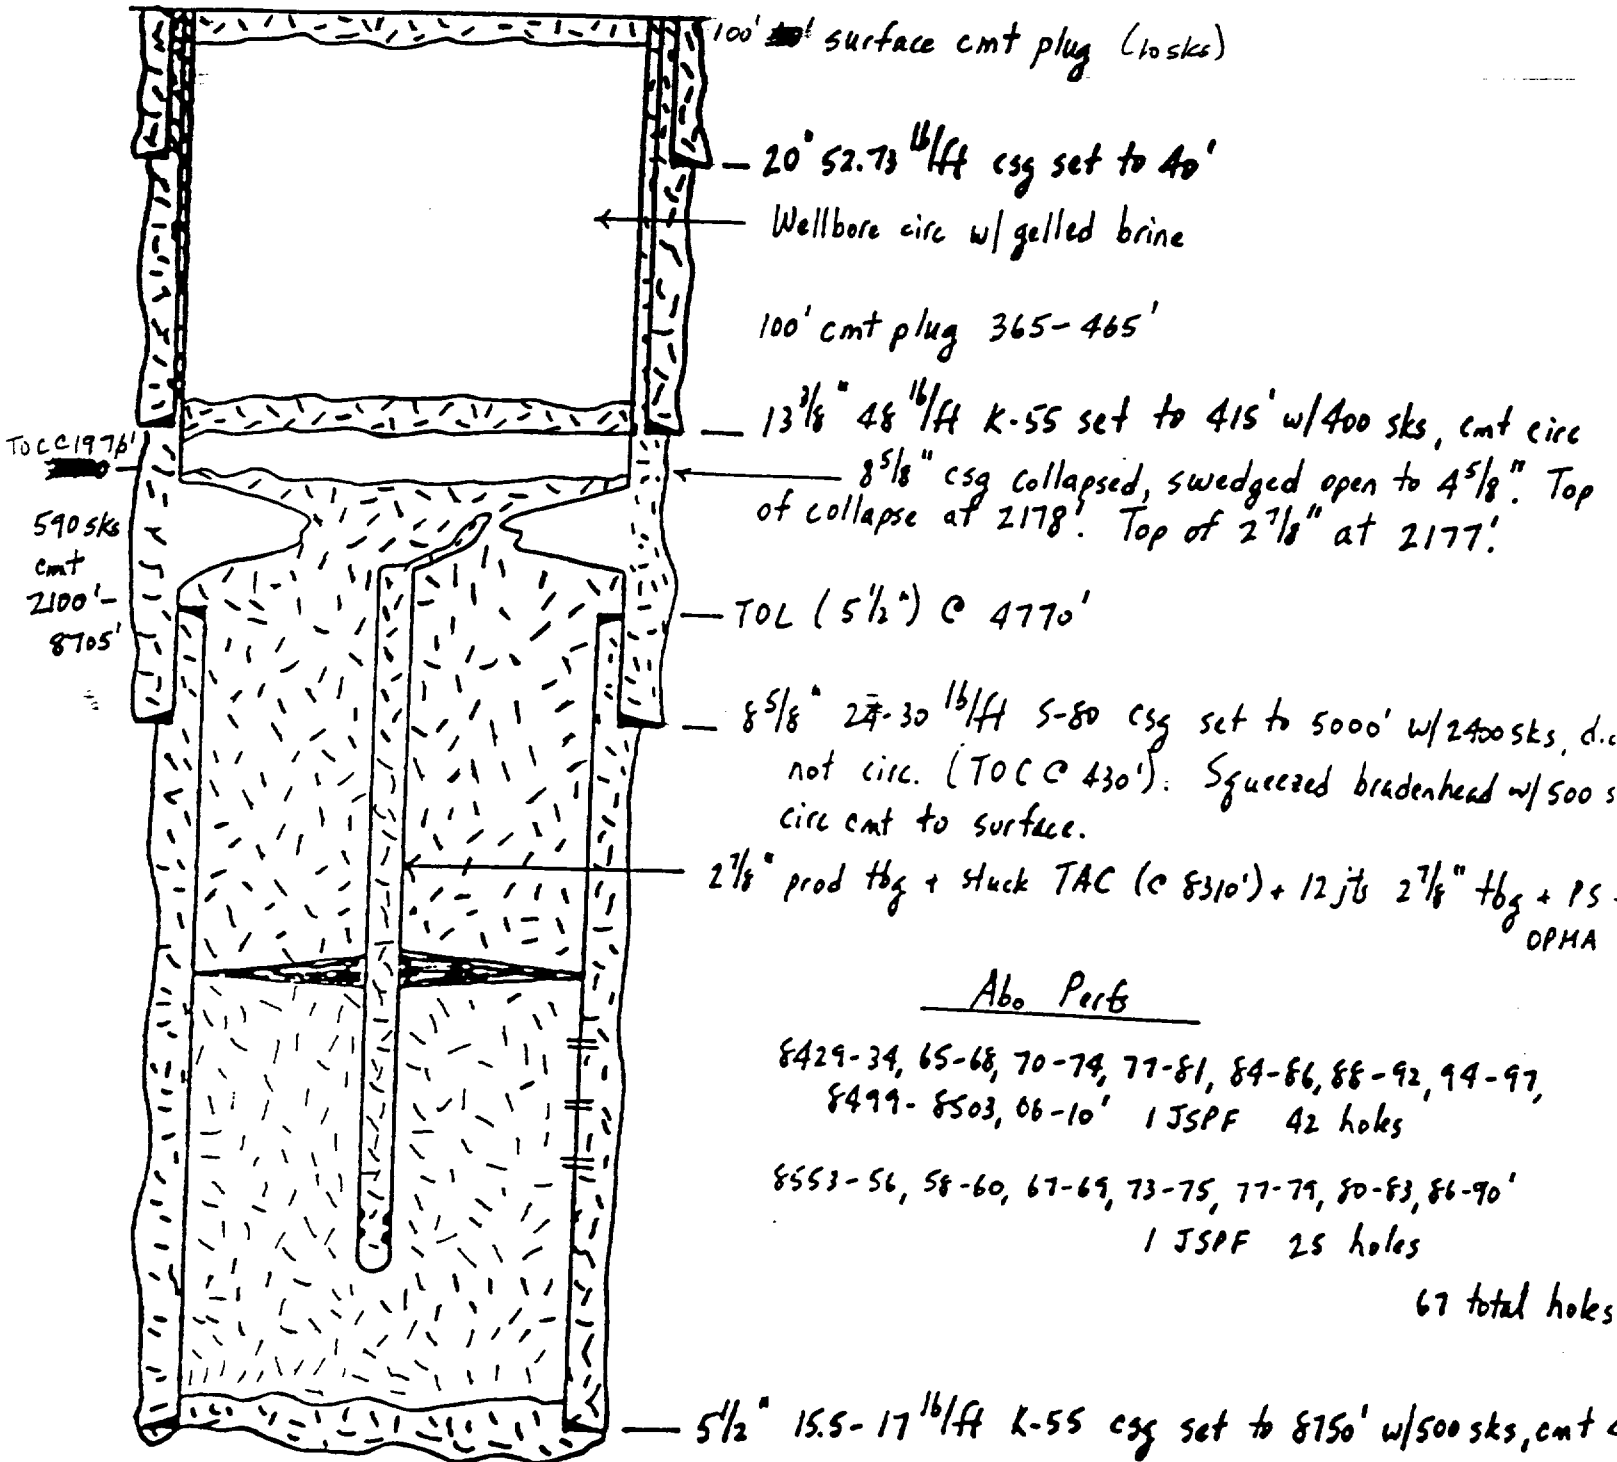 100' surface cmt plug (10sks)
20" 52.73 lb/ft csg set to 40'
Wellbore circ w/ gelled brine
100' cmt plug 365-465'
13 3/8" 48 lb/ft K-55 set to 415' w/400 sks, cmt circ
TOC @ 1976'
8 5/8" csg collapsed, swedged open to 4 5/8". Top
of collapse at 2178'. Top of 2 7/8" at 2177'.
590 sks
cmt
2100'-
8705'
TOL (5 1/2") @ 4770'
8 5/8" 24-30 lb/ft S-80 csg set to 5000' w/2400 sks,
not circ. (TOC @ 430'). Squeezed bradenhead w/ 500
circ cmt to surface.
2 7/8" prod tbg + stuck TAC (@ 8310') + 12 jts 2 7/8" tbg + PS
OPMA
Abo Perfs
8429-34, 65-68, 70-74, 77-81, 84-86, 88-92, 94-97,
8499-8503, 06-10' 1 JSPF 42 holes
8553-56, 58-60, 67-69, 73-75, 77-79, 80-83, 86-90'
1 JSPF 25 holes
67 total holes
5 1/2" 15.5-17 lb/ft K-55 csg set to 8750' w/500 sks, cmt